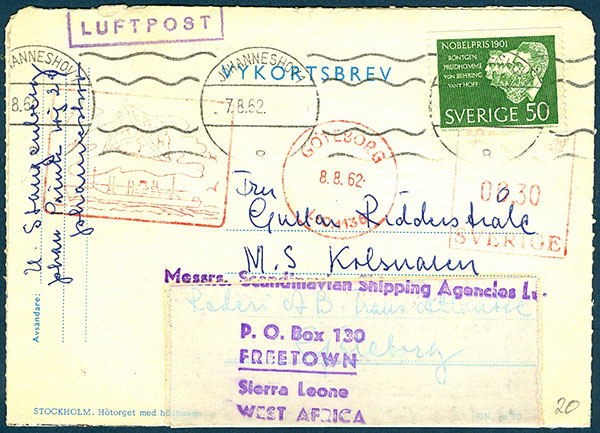 LUFTPOST
JOHANNESHOV
7.8.62.
8.62
VYKORTSBREV
NOBELPRIS 1901
RÖNTGEN
PRUDHOMME
VON BEHRING
VAN'T HOFF
SVERIGE 50
GÖTEBORG
8.8.62.
0030
SVERIGE
Fru
Gulla Ridderstrale
M.S Kolsnaren
Messrs. Scandinavian Shipping Agencies L
Rederi AB Transatlantic
Göteborg
P. O. Box 130
FREETOWN
Sierra Leone
WEST AFRICA
Avsändare: U
Johan Printz väg
Johanneshov
STOCKHOLM. Hötorget med
20